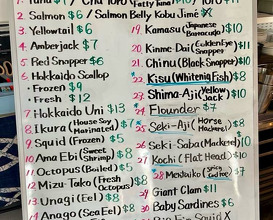 1. Tuna $7
2. Salmon $6 / Salmon Belly Kobu Jime $7
3. Yellowtail $6
4. Amberjack $7
5. Red Snapper $6
6. Hokkaido Scallop
• Frozen $9
• Fresh $12
7. Hokkaido Uni $13
8. Ikura (House Soy Marinated) $7
9. Squid (Frozen) $5
10 Ama Ebi (Sweet Shrimp) $8
11 Octopus (Boiled) $5
12 Mizu-Tako (Fresh Octopus) $8
13 Unagi (Eel) $8
Anago (Sea Eel) $8
19. Kamasu (Japanese Barracuda) $10
20. Kinme Dai (Golden Eye Snapper) $11
21. Chinu (Black Snapper) $10
22. Kisu (Whiting Fish) $8
23. Shima-Aji (Yellow Jack) $10
24 Flounder $7
25. Seki-Aji (Horse Mackerel) $8
26 Seki-Saba (Mackerel) $10
27 Kochi (Flat Head) $10
28
29 Giant Clam $11
30 Baby Sardines $6